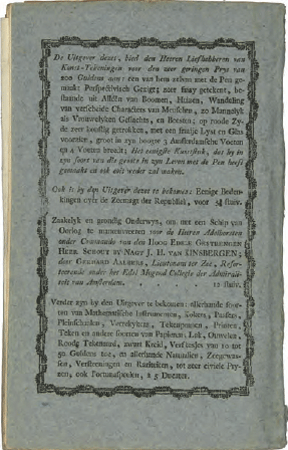 De Uitgever dezes, bied den Heeren Liefhebberen van
Konst-Tekeningen voor den zeer geringen Prys van
200 Guldens aan: een van hem zelven met de Pen ge-
maakt Perspectivisch Gezigt; zeer fraay getekent, be-
staande uit Alléën van Boomen, Huizen, Wandeling
van verscheide Characters van Menschen, zo Mannelyk
als Vrouwelyken Geslachts, en Beesten; op roode Zy-
de zeer konstig getrokken, met een fraaije Lyst en Glas
voorzien, groot in zyn hoogte 3 Amsterdamsche Voeten
en 4 Voeten breedt: Het eenigste Kunststuk, dat hy in
zyn soort van die groote in zyn Leven met de Pen heeft
gemaakt en ook ooit weder zal maken.
Ook is by dien Uitgever dezes te bekomen: Eenige Beden-
kingen over de Zeemagt der Republiek, voor 5½ stuiv.
Zaakelyk en grondig Onderwys, om met een Schip van
Oorlog te manoeuvreeren voor de Heeren Adelborsten
onder Commando van den Hoog Edele Gestrengen
Heer Schout by Nagt J. H. van Kinsbergen;
door Gerhard Aalders, Lieutenant ter Zee, Resor-
teerende onder het Edel Mogend Collegie der Admirali-
teit van Amsterdam. 12 stuiv.
Verder zyn by den Uitgever te bekomen: allerhande soor-
ten van Mathematische Instrumenten, Kokers, Passers,
Pleinschaalen, Verrekykers, Tekenpennen, Printen,
Teken en andere soorten van Papieren, Lak, Ouwelen,
Roode Tekenaard, zwart Kryt, Verfkasjes van 10 tot
50 Guldens toe, en allerhande Naturalien, Zeegewas-
sen, Versteeningen en Rariteiten, tot zeer civiele Pry-
zen, ook Fortunaspeelen, à 5 Ducaten.